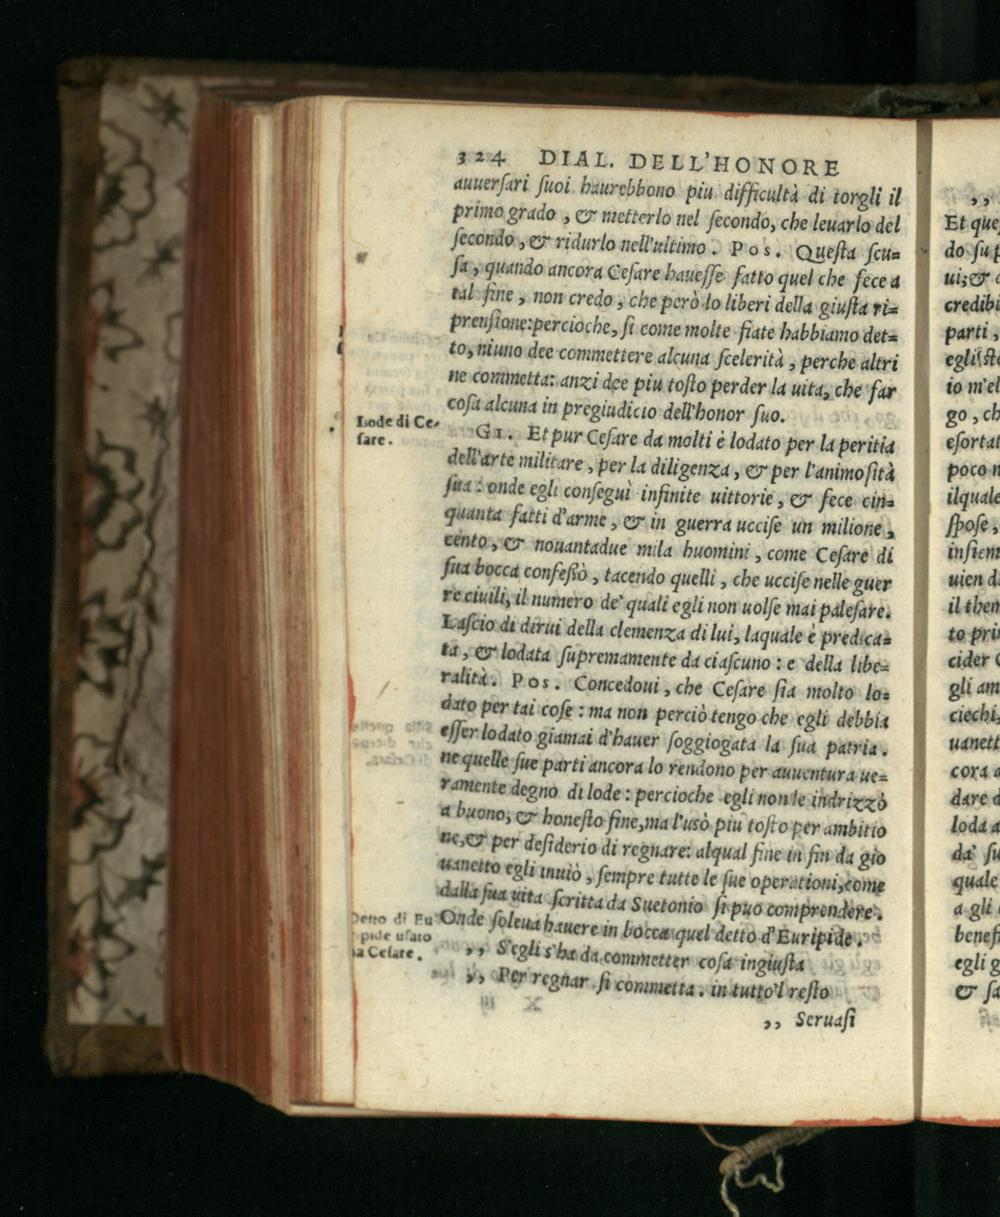 324 DIAL. DELL'HONORE
auuersari suoi haurebbono piu difficultà di torgli il
primo grado, & metterlo nel secondo, che leuarlo del
secondo, & ridurlo nell'ultimo. Pos. Questa scu=
sa, quando ancora Cesare hauesse fatto quel che fece a
tal fine, non credo, che però lo liberi della giusta ri=
prensione: percioche, si come molte fiate habbiamo det=
to, niuno dee commettere alcuna scelerità, perche altri
ne commetta: anzi dee piu tosto perder la uita, che far
cosa alcuna in pregiudicio dell'honor suo.
Lode di Ce-
sare.
GI. Et pur Cesare da molti è lodato per la peritia
dell'arte militare, per la diligenza, & per l'animosità
sua: onde egli conseguì infinite uittorie, & fece cin=
quanta fatti d'arme, & in guerra uccise un milione,
cento, & nouantadue mila huomini, come Cesare di
sua bocca confessò, tacendo quelli, che uccise nelle guer
re ciuili, il numero de' quali egli non uolse mai palesare.
Lascio di dirui della clemenza di lui, laquale è predica=
ta, & lodata supremamente da ciascuno: e della libe=
ralità. Pos. Concedoui, che Cesare sia molto lo=
dato per tai cose: ma non perciò tengo che egli debbia
esser lodato giamai d'hauer soggiogata la sua patria.
ne quelle sue parti ancora lo rendono per auuentura ue=
ramente degno di lode: percioche egli non le indrizzò
a buono, & honesto fine, ma l'usò piu tosto per ambitio
ne, & per desiderio di regnare: alqual fine in fin da gio
uanetto egli inuiò, sempre tutte le sue operationi, come
dalla sua uita scritta da Suetonio si puo comprendere.
Detto di Eu
ripide usato
da Cesare.
Onde soleua hauere in bocca quel detto d'Euripide.
,, S'egli s'ha da commetter cosa ingiusta
,, Per regnar si commetta. in tutto'l resto
,, Seruasi
,,
Et que
do su p
ui; &
credibi
parti,
egli ste
io m'el
go, ch
esortat
poco n
ilquale
spose,
insiem
uien d
il them
to pri
cider C
gli am
ciechi,
uanett
cora a
dare d
loda a
da' su
quale
a gli
benefi
egli g
& sa